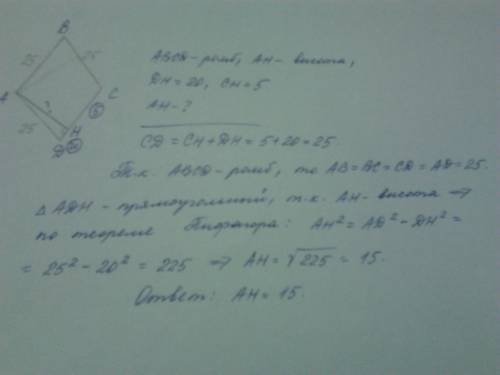 B
25
25
A
?
C
5
25
H
D
20
ABCD - ромб, AH - высота,
DH = 20, CH = 5
AH - ?
CD = CH + DH = 5 + 20 = 25.
Т.к. ABCD - ромб, то AB = BC = CD = AD = 25.
△ ADH - прямоугольный, т.к. AH - высота ⇒
по теореме Пифагора: AH² = AD² - DH² =
= 25² - 20² = 225 ⇒ AH = √225 = 15.
Ответ: AH = 15.